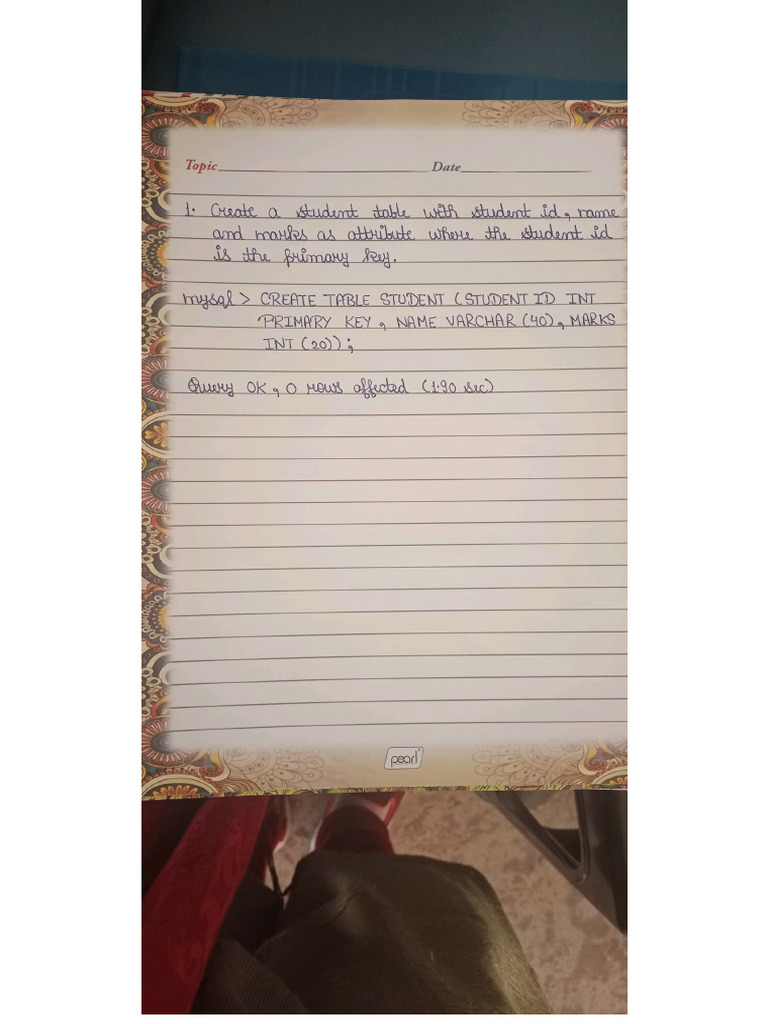 Topic Date
1. Create a student table with student id, name
and marks as attribute where the student id
is the primary key.
mysql > CREATE TABLE STUDENT (STUDENT ID INT
PRIMARY KEY, NAME VARCHAR (40), MARKS
INT (20));
Query OK, 0 rows affected (1.90 sec)
pearl